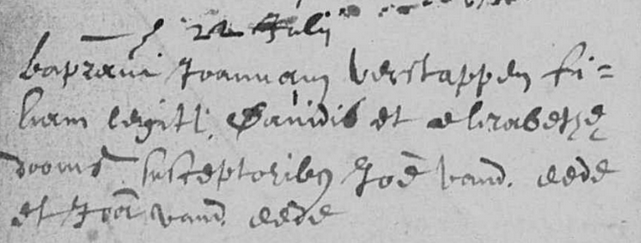 22 Julij
baptavi Joannam verstappen fi=
liam legiti. Davidis et elizabethe
dooms susceptoribus Joe vand. eede
et Joa vand. eede